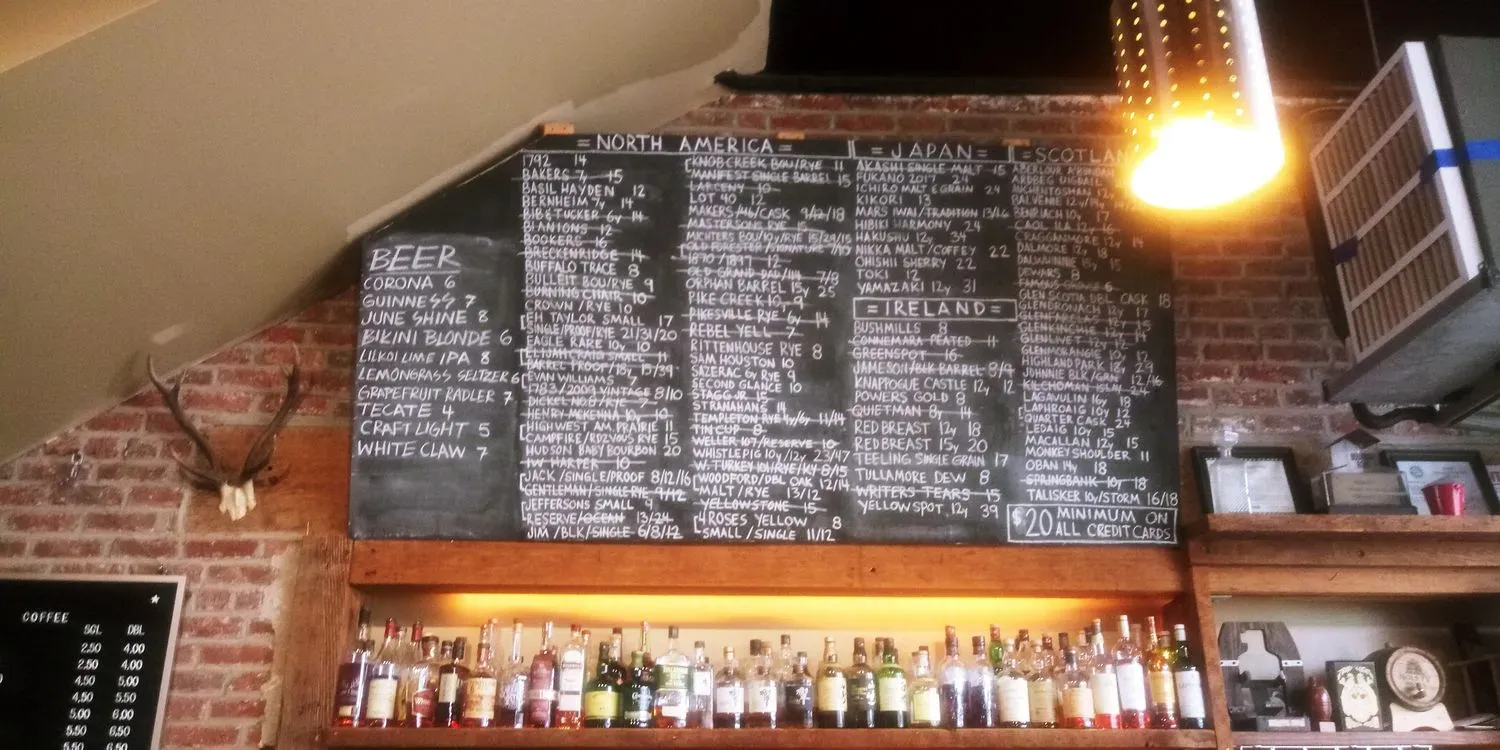 BEER
CORONA 6
GUINNESS 7
JUNE SHINE 8
BIKINI BLONDE 6
LILKOI LIME IPA 8
LEMONGRASS SELTZER 6
GRAPEFRUIT RADLER 7
TECATE 4
CRAFT LIGHT 5
WHITE CLAW 7
= NORTH AMERICA =
1792 14
BAKERS 7y 15
BASIL HAYDEN 12
BERNHEIM 7y 14
BIB & TUCKER 6y 14
BLANTONS 12
BOOKERS 16
BRECKENRIDGE 14
BUFFALO TRACE 8
BULLEIT BOU/RYE 9
BURNING CHAIR 10
CROWN / RYE 10
EH TAYLOR SMALL 17
SINGLE/PROOF/RYE 21/31/20
EAGLE RARE 10y 10
ELIJAH CRAIG SMALL 11
BARREL PROOF/18y 15/39
EVAN WILLIAMS 7
1783/2009 VINTAGE 8/10
DICKEL NO.8/RYE
HENRY MCKENNA 10y 10
HIGH WEST AM. PRAIRIE 11
CAMPFIRE/RDZVOUS RYE 15
HUDSON BABY BOURBON 20
IW HARPER 10
JACK/SINGLE/PROOF 8/12/16
GENTLEMAN/SINGLE RYE 9/12
JEFFERSONS SMALL 9
RESERVE/OCEAN 13/24
JIM/BLK/SINGLE 6/8/12
KNOB CREEK BOU/RYE 11
MANIFEST SINGLE BARREL 15
LARCENY 10
LOT 40 12
MAKERS/46/CASK 9/12/18
MASTERSONS RYE 15
MICHTERS BOU/10y/RYE 15/29/15
OLD FORESTER/SIGNATURE 7/10
1870/1897 12
OLD GRAND DAD/114 7/8
ORPHAN BARREL 15y 25
PIKE CREEK 10y 9
PIKESVILLE RYE 6y 14
REBEL YELL 7
RITTENHOUSE RYE 8
SAM HOUSTON 10
SAZERAC 6y RYE 9
SECOND GLANCE 10
STAGG JR 15
STRANAHANS 14
TEMPLETON RYE 4y/6y 11/14
TIN CUP 8
WELLER 107/RESERVE 10
WHISTLEPIG 10y/12y 23/47
W. TURKEY 101/RYE/KY 8/15
WOODFORD/DBL OAK 12/14
MALT/RYE 13/12
YELLOWSTONE 15
4 ROSES YELLOW 8
SMALL/SINGLE 11/12
= JAPAN =
AKASHI SINGLE MALT 15
FUKANO 2017 24
ICHIRO MALT & GRAIN 24
KIKORI 13
MARS IWAI/TRADITION 13/16
HIBIKI HARMONY 24
HAKUSHU 12y 34
NIKKA MALT/COFFEY 22
OHISHII SHERRY 22
TOKI 12
YAMAZAKI 12y 31
= IRELAND =
BUSHMILLS 8
CONNEMARA PEATED 11
GREENSPOT 16
JAMESON/BLK BARREL 8/9
KNAPPOGUE CASTLE 12y 12
POWERS GOLD 8
QUIETMAN 8y 14
REDBREAST 12y 18
REDBREAST 15y 20
TEELING SINGLE GRAIN 17
TULLAMORE DEW 8
WRITERS TEARS 15
YELLOW SPOT 12y 39
= SCOTLAN
ABERLOUR A'BUNADH
ARDBEG UIGEADAIL
AUCHENTOSHAN
BALVENIE 12y
BENRIACH 10y 17
CAOL ILA 12y 16
CRAGGANMORE 12y 14
DALMORE 12y 18
DALWHINNIE 15y 15
DEWARS 8
FAMOUS GROUSE 6
GLEN SCOTIA DBL CASK 18
GLENDRONACH 12y 17
GLENFARCLAS
GLENKINCHIE 12y
GLENLIVET 12y 12
GLENMORANGIE 10y 13
HIGHLAND PARK 18y 29
JOHNNIE BLK/GREEN 12/16
KILCHOMAN ISLAY 24
LAGAVULIN 16y 18
LAPHROAIG 10y 12
QUARTER CASK 24
LEDAIG 10y 15
MACALLAN 12y 15
MONKEY SHOULDER 11
OBAN 14y 18
SPRINGBANK 10y 18
TALISKER 10y/STORM 16/18
$20 MINIMUM ON
ALL CREDIT CARDS
COFFEE
SGL DBL
2.50 4.00
2.50 4.00
4.50 5.00
4.50 5.50
5.00 6.00
5.50 6.50
5.50 6.50